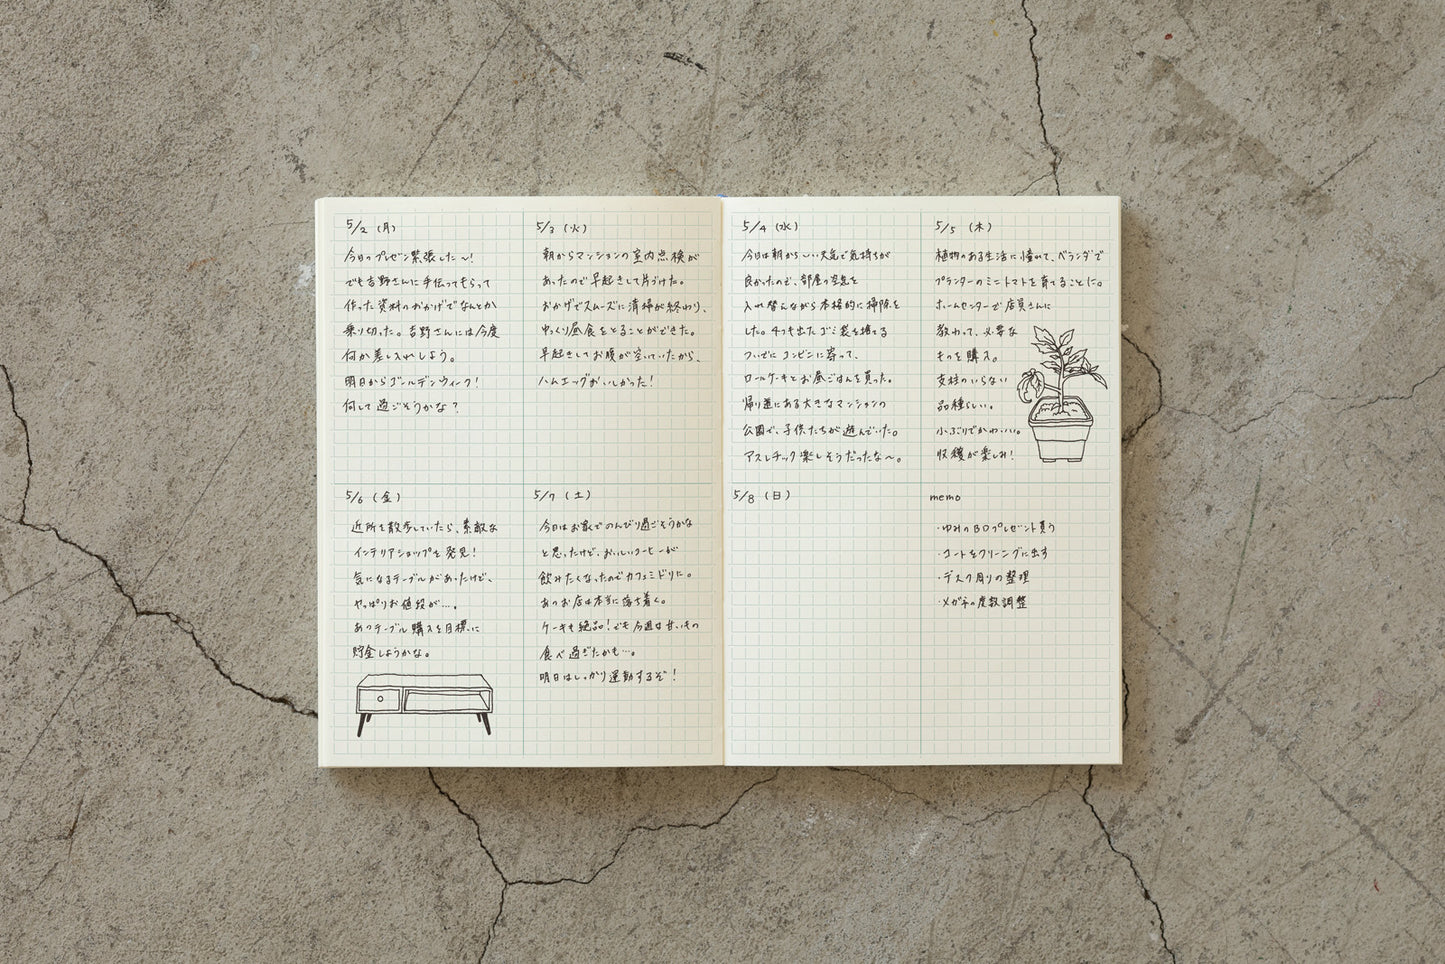 5/2（月）
今日のプレゼン緊張した〜！
でも吉野さんに手伝ってもらって
作った資料のおかげでなんとか
乗り切った。吉野さんには今度
何か差し入れしよう。
明日からゴールデンウィーク！
何して過ごそうかな？
5/3（火）
朝からマンションの室内点検が
あったので早起きして片づけた。
おかげでスムーズに清掃が終わり、
ゆっくり昼食をとることができた。
早起きしてお腹が空いていたから、
ハムエッグおいしかった！
5/4（水）
今日は朝からいい天気で気持ちが
良かったので、部屋の空気を
入れ替えながら本格的に掃除を
した。4つも出たゴミ袋を捨てる
ついでにコンビニに寄って、
ロールケーキとお昼ごはんを買った。
帰り道にある大きなマンションの
公園で、子供たちが遊んでいた。
アスレチック楽しそうだったな〜。
5/5（木）
植物のある生活に憧れて、ベランダで
プランターのミニトマトを育てることに。
ホームセンターで店員さんに
教わって、必要な
ものを購入。
支柱のいらない
品種らしい。
小ぶりでかわいい。
収穫が楽しみ！
5/6（金）
近所を散歩していたら、素敵な
インテリアショップを発見！
気になるテーブルがあったけど、
やっぱりお値段が…。
あのテーブル購入を目標に
貯金しようかな。
5/7（土）
今日はお家でのんびり過ごそうかな
と思ったけど、おいしいコーヒーが
飲みたくなったのでカフェミドリに。
あのお店は本当に落ち着く。
ケーキも絶品！でも今週は甘いもの
食べ過ぎたかも…。
明日はしっかり運動するぞ！
5/8（日）
memo
・ゆみのBDプレゼント買う
・コートをクリーニングに出す
・デスク周りの整理
・メガネの度数調整